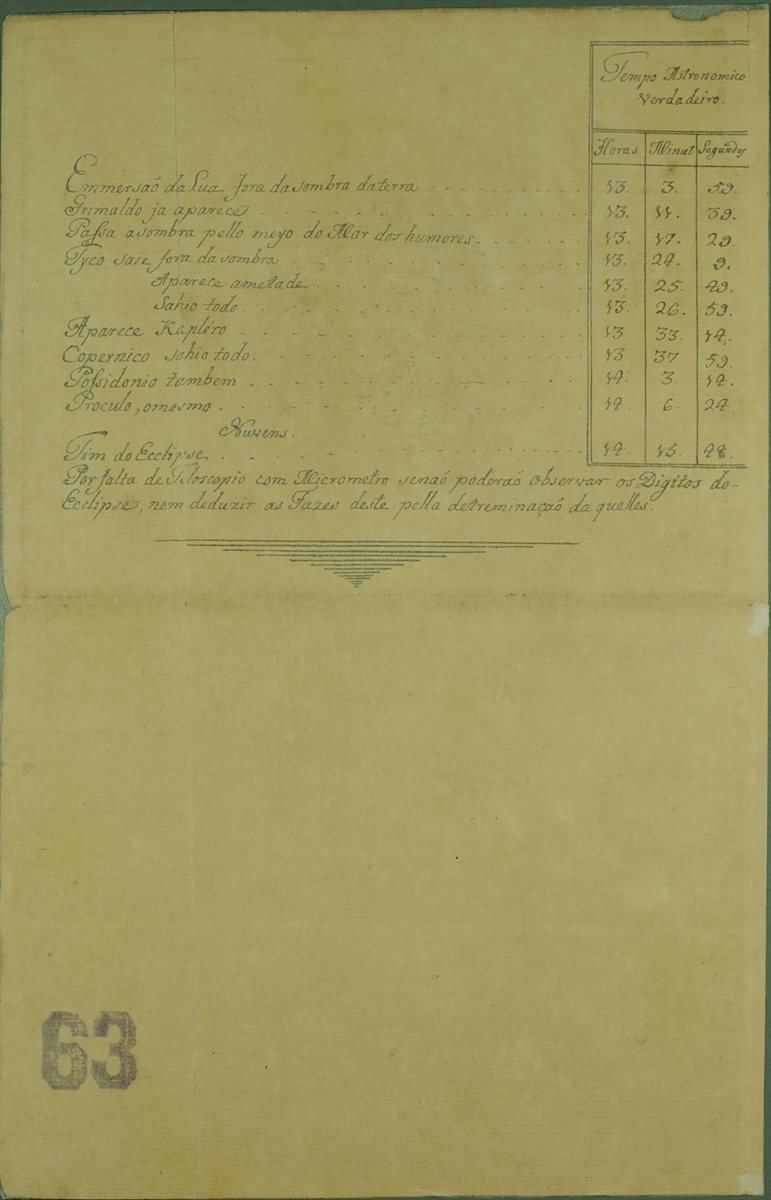 Tempo Astronomico
Verdadeiro.
Horas Minut Segundos
Emmersaõ da Lua fora da sombra da terra 13. 3. 59.
Grimaldo ja aparece 13. 11. 39.
Passa a sombra pello meyo do Mar dos humores 13. 17. 29.
Tyco saie fora da sombra 13. 24. 9.
Aparece ametade 13. 25. 49.
Sahio todo. 13. 26. 59.
Aparece Kapléro 13 33. 14.
Copernico sahio todo. 13 37 59.
Possidonio tambem 14. 3. 14.
Proculo, omesmo 14 6. 24
Nuvens.
Fim do Ecclipse 14. 15. 48.
Por falta de Teloscopio com Micrometro senaõ poderaõ observar os Digitos do-
Ecclipse, nem deduzir as Fazes deste pella detreminaçaõ da quelles.
63